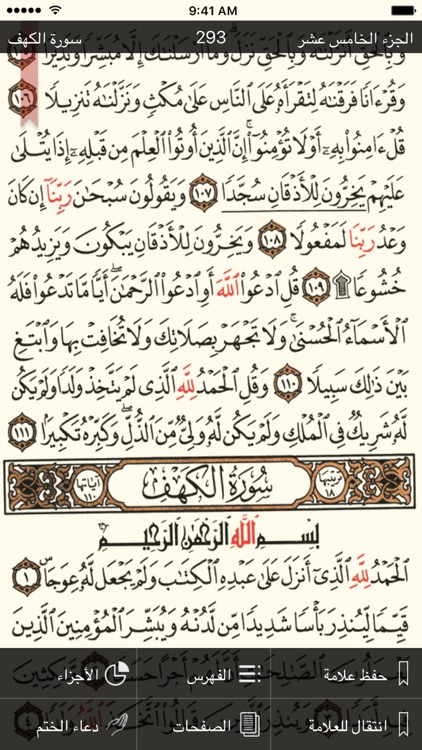 9:41 AM
الجزء الخامس عشر 293 سورة الكهف
وَبِٱلْحَقِّ أَنزَلْنَٰهُ وَبِٱلْحَقِّ نَزَلَ ۗ وَمَآ أَرْسَلْنَٰكَ إِلَّا مُبَشِّرًا وَنَذِيرًا ١٠٥
وَقُرْءَانًا فَرَقْنَٰهُ لِتَقْرَأَهُۥ عَلَى ٱلنَّاسِ عَلَىٰ مُكْثٍ وَنَزَّلْنَٰهُ تَنزِيلًا ١٠٦
قُلْ ءَامِنُوا۟ بِهِۦٓ أَوْ لَا تُؤْمِنُوٓا۟ ۚ إِنَّ ٱلَّذِينَ أُوتُوا۟ ٱلْعِلْمَ مِن قَبْلِهِۦٓ إِذَا يُتْلَىٰ
عَلَيْهِمْ يَخِرُّونَ لِلْأَذْقَانِ سُجَّدًا ١٠٧ وَيَقُولُونَ سُبْحَٰنَ رَبِّنَآ إِن كَانَ
وَعْدُ رَبِّنَا لَمَفْعُولًا ١٠٨ وَيَخِرُّونَ لِلْأَذْقَانِ يَبْكُونَ وَيَزِيدُهُمْ
خُشُوعًا ۩ ١٠٩ قُلِ ٱدْعُوا۟ ٱللَّهَ أَوِ ٱدْعُوا۟ ٱلرَّحْمَٰنَ ۖ أَيًّا مَّا تَدْعُوا۟ فَلَهُ
ٱلْأَسْمَآءُ ٱلْحُسْنَىٰ ۚ وَلَا تَجْهَرْ بِصَلَاتِكَ وَلَا تُخَافِتْ بِهَا وَٱبْتَغِ
بَيْنَ ذَٰلِكَ سَبِيلًا ١١٠ وَقُلِ ٱلْحَمْدُ لِلَّهِ ٱلَّذِى لَمْ يَتَّخِذْ وَلَدًا وَلَمْ يَكُن
لَّهُۥ شَرِيكٌ فِى ٱلْمُلْكِ وَلَمْ يَكُن لَّهُۥ وَلِىٌّ مِّنَ ٱلذُّلِّ ۖ وَكَبِّرْهُ تَكْبِيرًا ١١١
ترتيبها ١٨ سُورَةُ الكَهْف آياتها ١١٠
بِسْمِ ٱللَّهِ ٱلرَّحْمَٰنِ ٱلرَّحِيمِ
ٱلْحَمْدُ لِلَّهِ ٱلَّذِىٓ أَنزَلَ عَلَىٰ عَبْدِهِ ٱلْكِتَٰبَ وَلَمْ يَجْعَل لَّهُۥ عِوَجًا ١
قَيِّمًا لِّيُنذِرَ بَأْسًا شَدِيدًا مِّن لَّدُنْهُ وَيُبَشِّرَ ٱلْمُؤْمِنِينَ ٱلَّذِينَ
حفظ علامة الفهرس الأجزاء
انتقال للعلامة الصفحات دعاء الختم